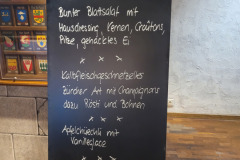 Bunter Blattsalat mit
Hausdressing, Kernen, Croûtons,
Pilze, gehacktes Ei
x x x
Kalbfleischgeschnetzeltes
Zürcher Art mit Champignons
dazu Rösti und Bohnen
x x x
Apfelchüechli mit
Vanilleglace
x x x